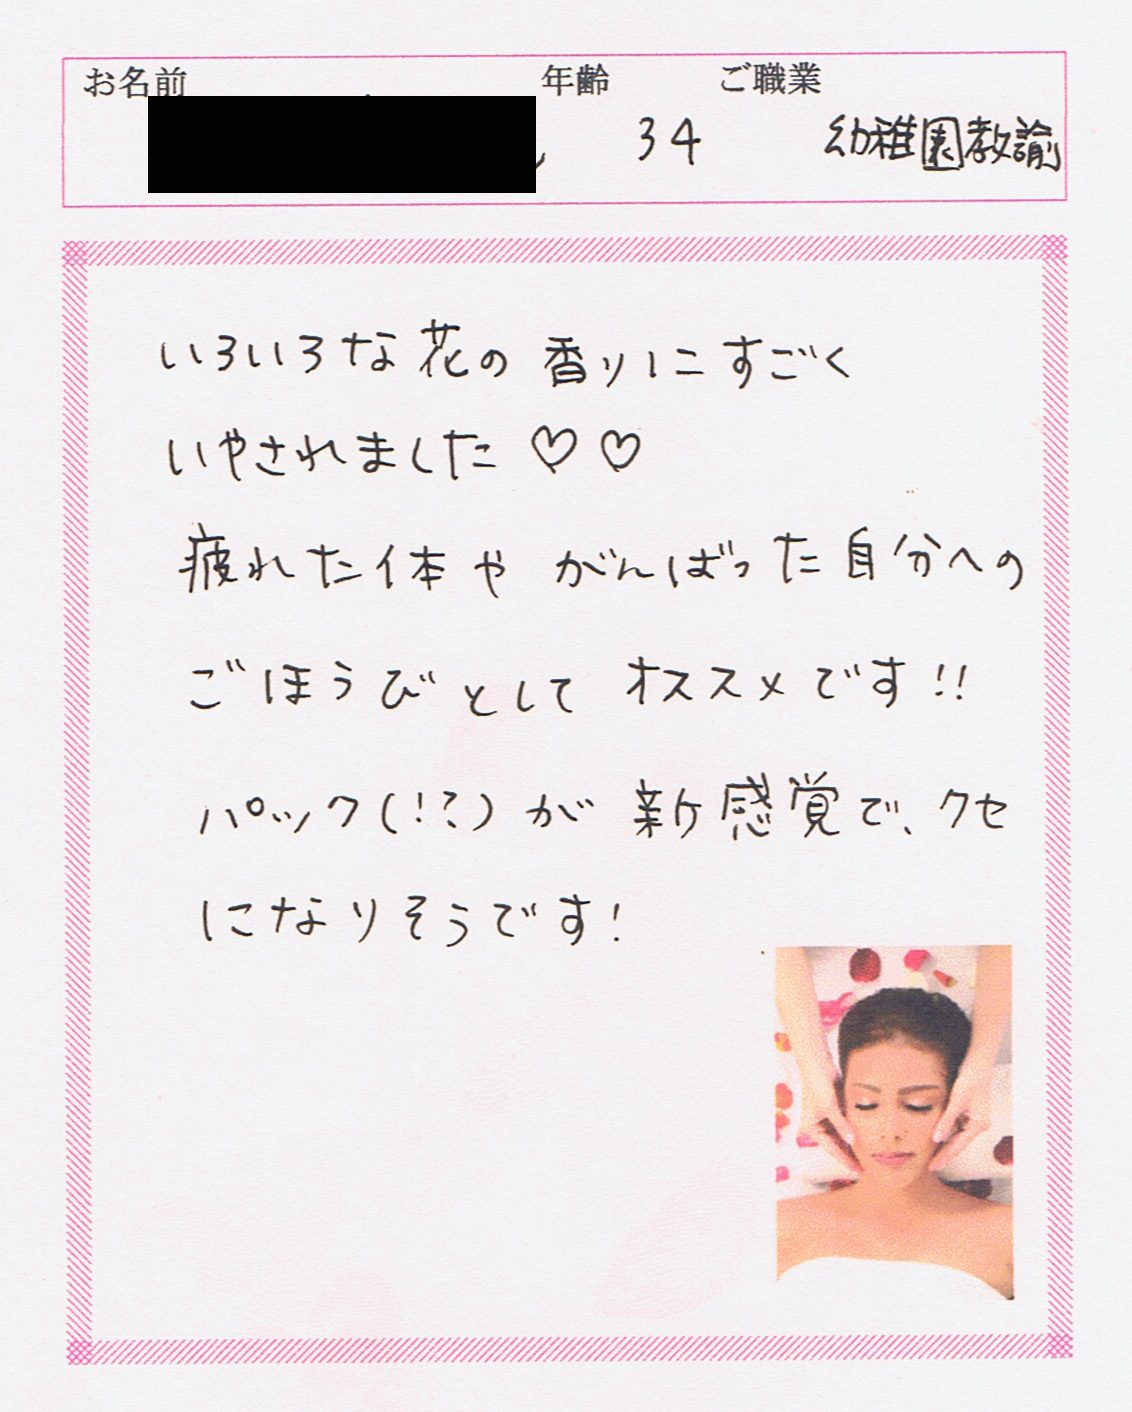 お名前 年齢 ご職業
34 幼稚園教諭
いろいろな花の香りにすごく
いやされました♡♡
疲れた体や がんばった自分への
ごほうびとして オススメです!!
パック(!?)が 新感覚で、クセ
になりそうです!